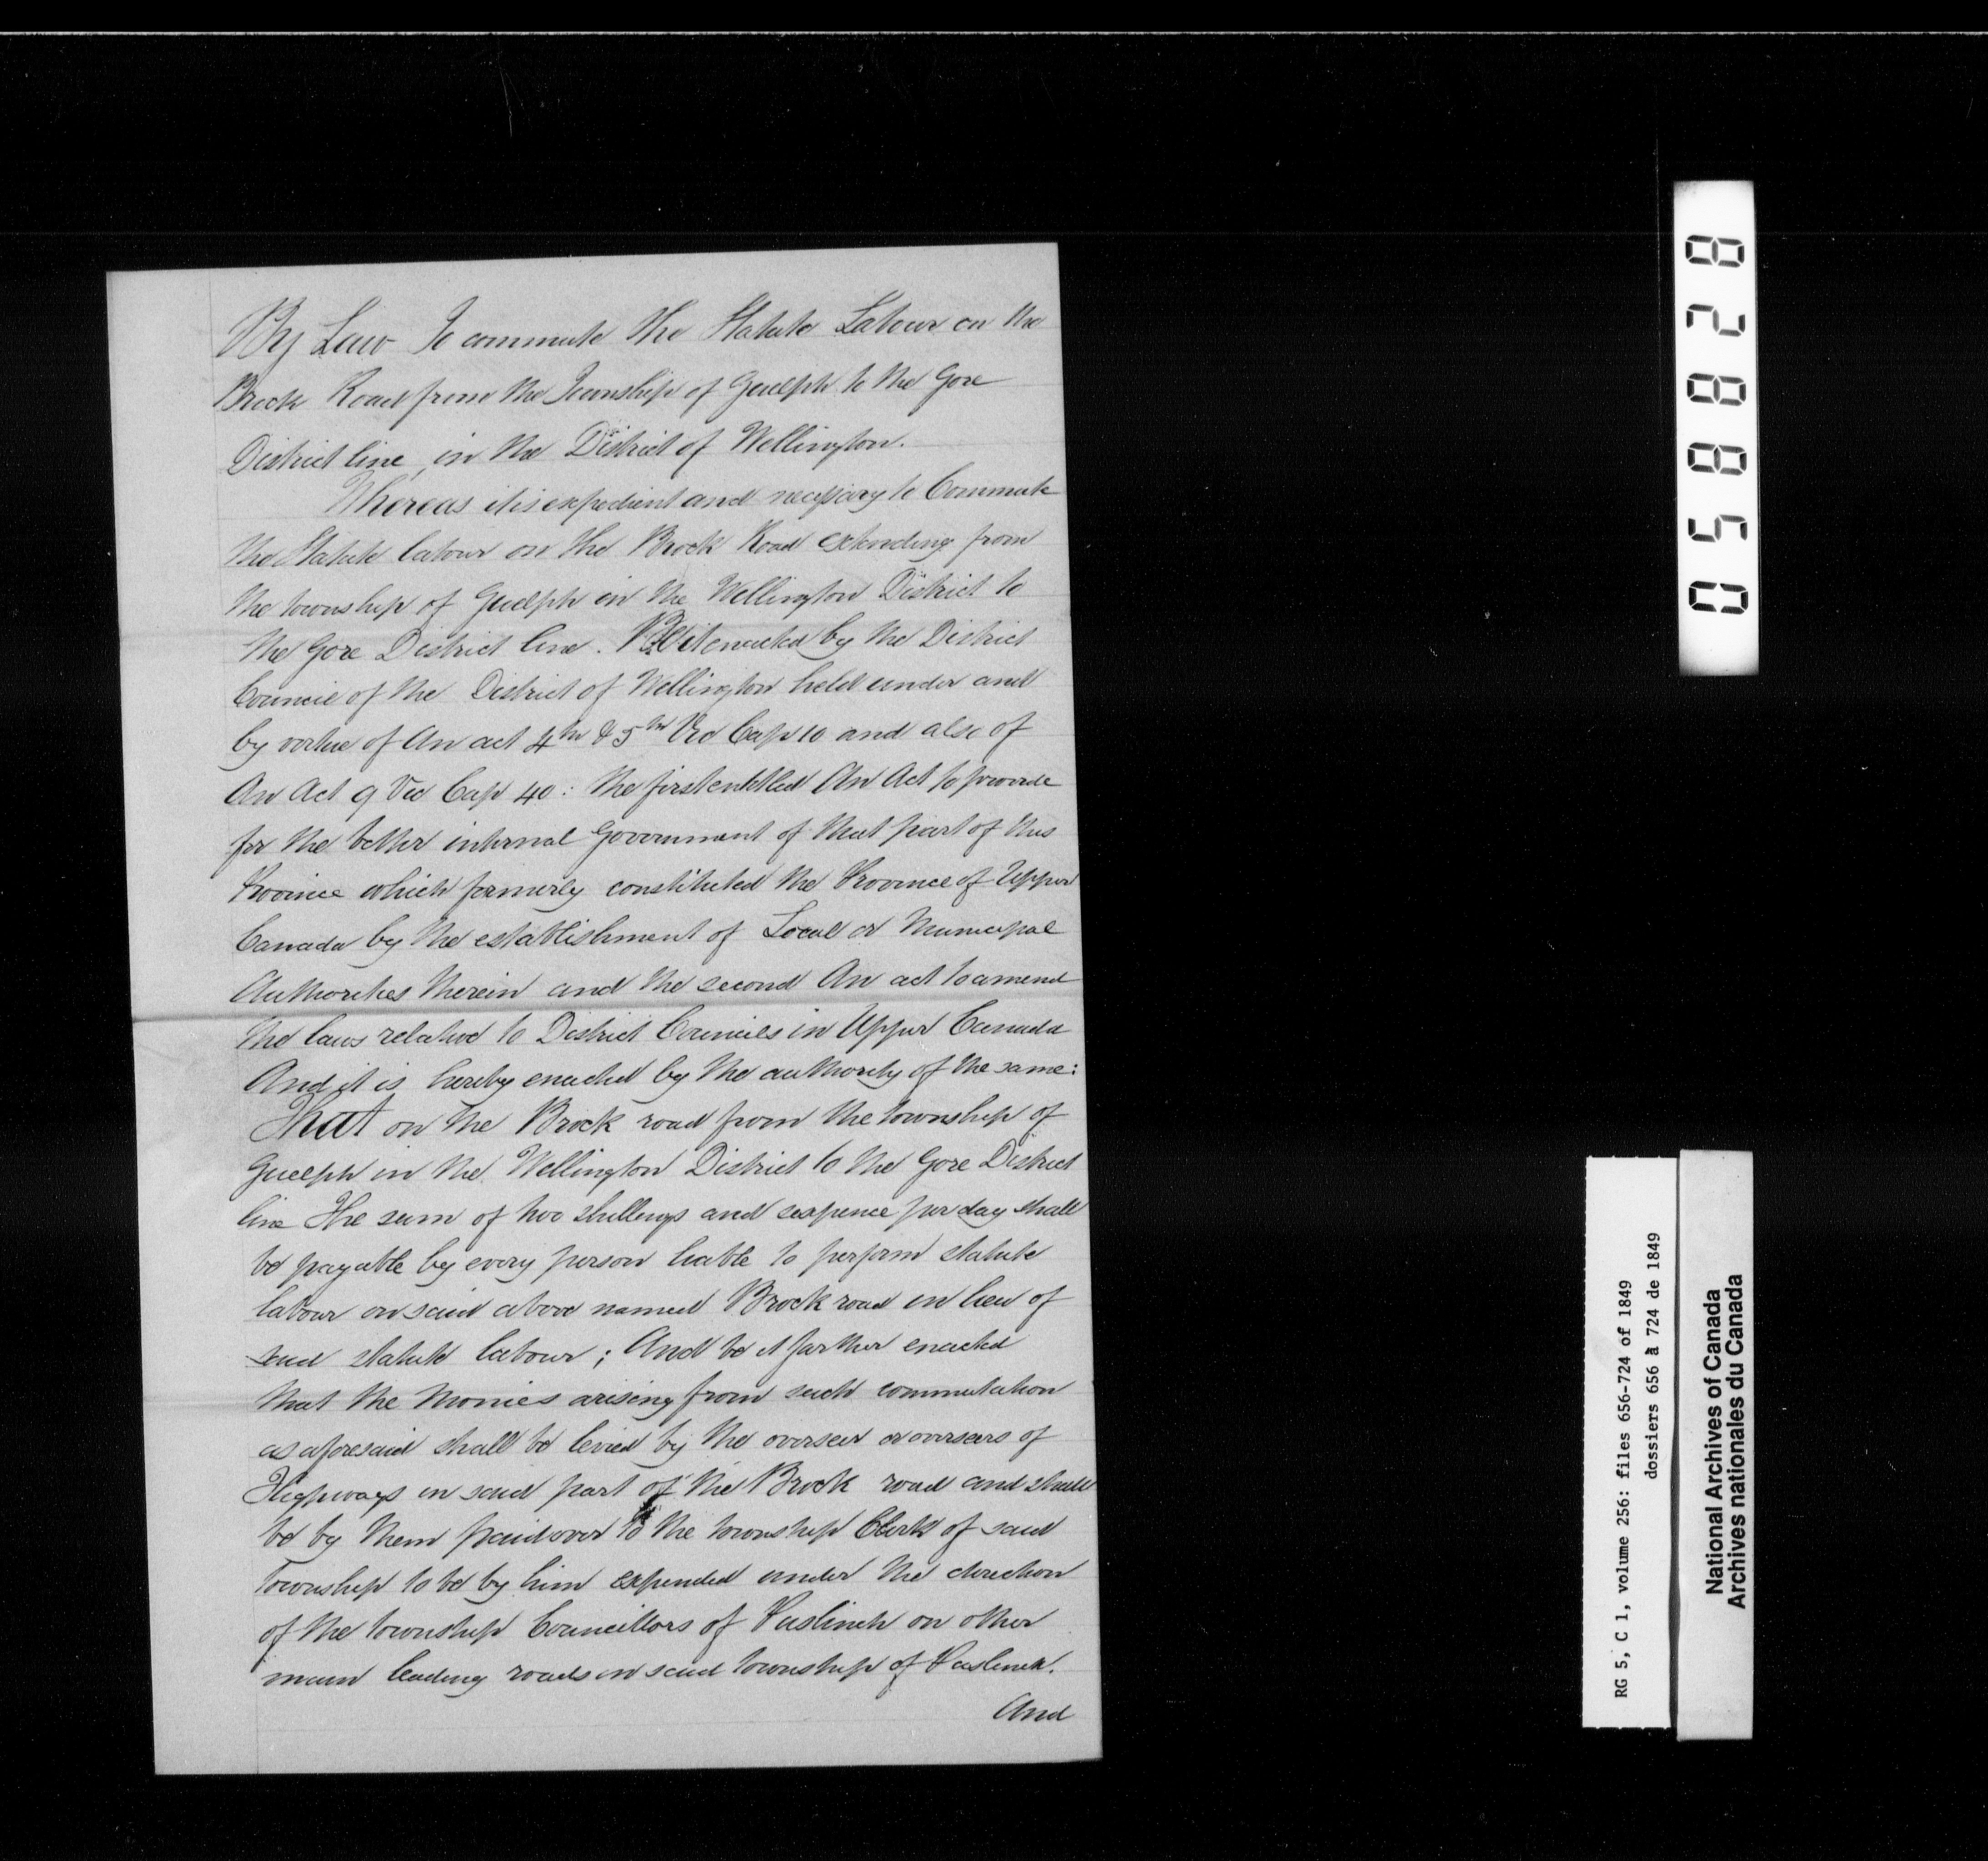 By Law To commute the Statute Labour on the
Brock Road from the Township of Guelph to the Gore
District line, in the District of Wellington.
Whereas it is expedient and necessary to Commute
the Statute labour on the Brock Road extending from
the township of Guelph in the Wellington District to
the Gore District line. Be it enacted by the District
Council of the District of Wellington held under and
by virtue of An act 4th & 5th Vic Cap 10 and also of
An Act 9 Vic Cap 40: the first entitled An Act to provide
for the better internal Government of that part of this
Province which formerly constituted the Province of Upper
Canada by the establishment of Local or Municipal
Authorities therein and the second An act to amend
the laws relative to District Councils in Upper Canada
And it is hereby enacted by the authority of the same:
That on the Brock road from the township of
Guelph in the Wellington District to the Gore District
line The sum of two shillings and sixpence per day shall
be payable by every person liable to perform statute
labour on said above named Brock road in lieu of
said statute labour; And be it further enacted
that the Monies arising from such commutation
as aforesaid shall be levied by the overseer or overseers of
Highways in said part of the Brock road and shall
be by them paid over to the township Clerk of said
Township to be by him expended under the direction
of the township Councillors of Puslinch on other
main leading roads in said township of Puslinch.
And
058828
RG 5, C 1, volume 256: files 656-724 of 1849
dossiers 656 à 724 de 1849
National Archives of Canada
Archives nationales du Canada